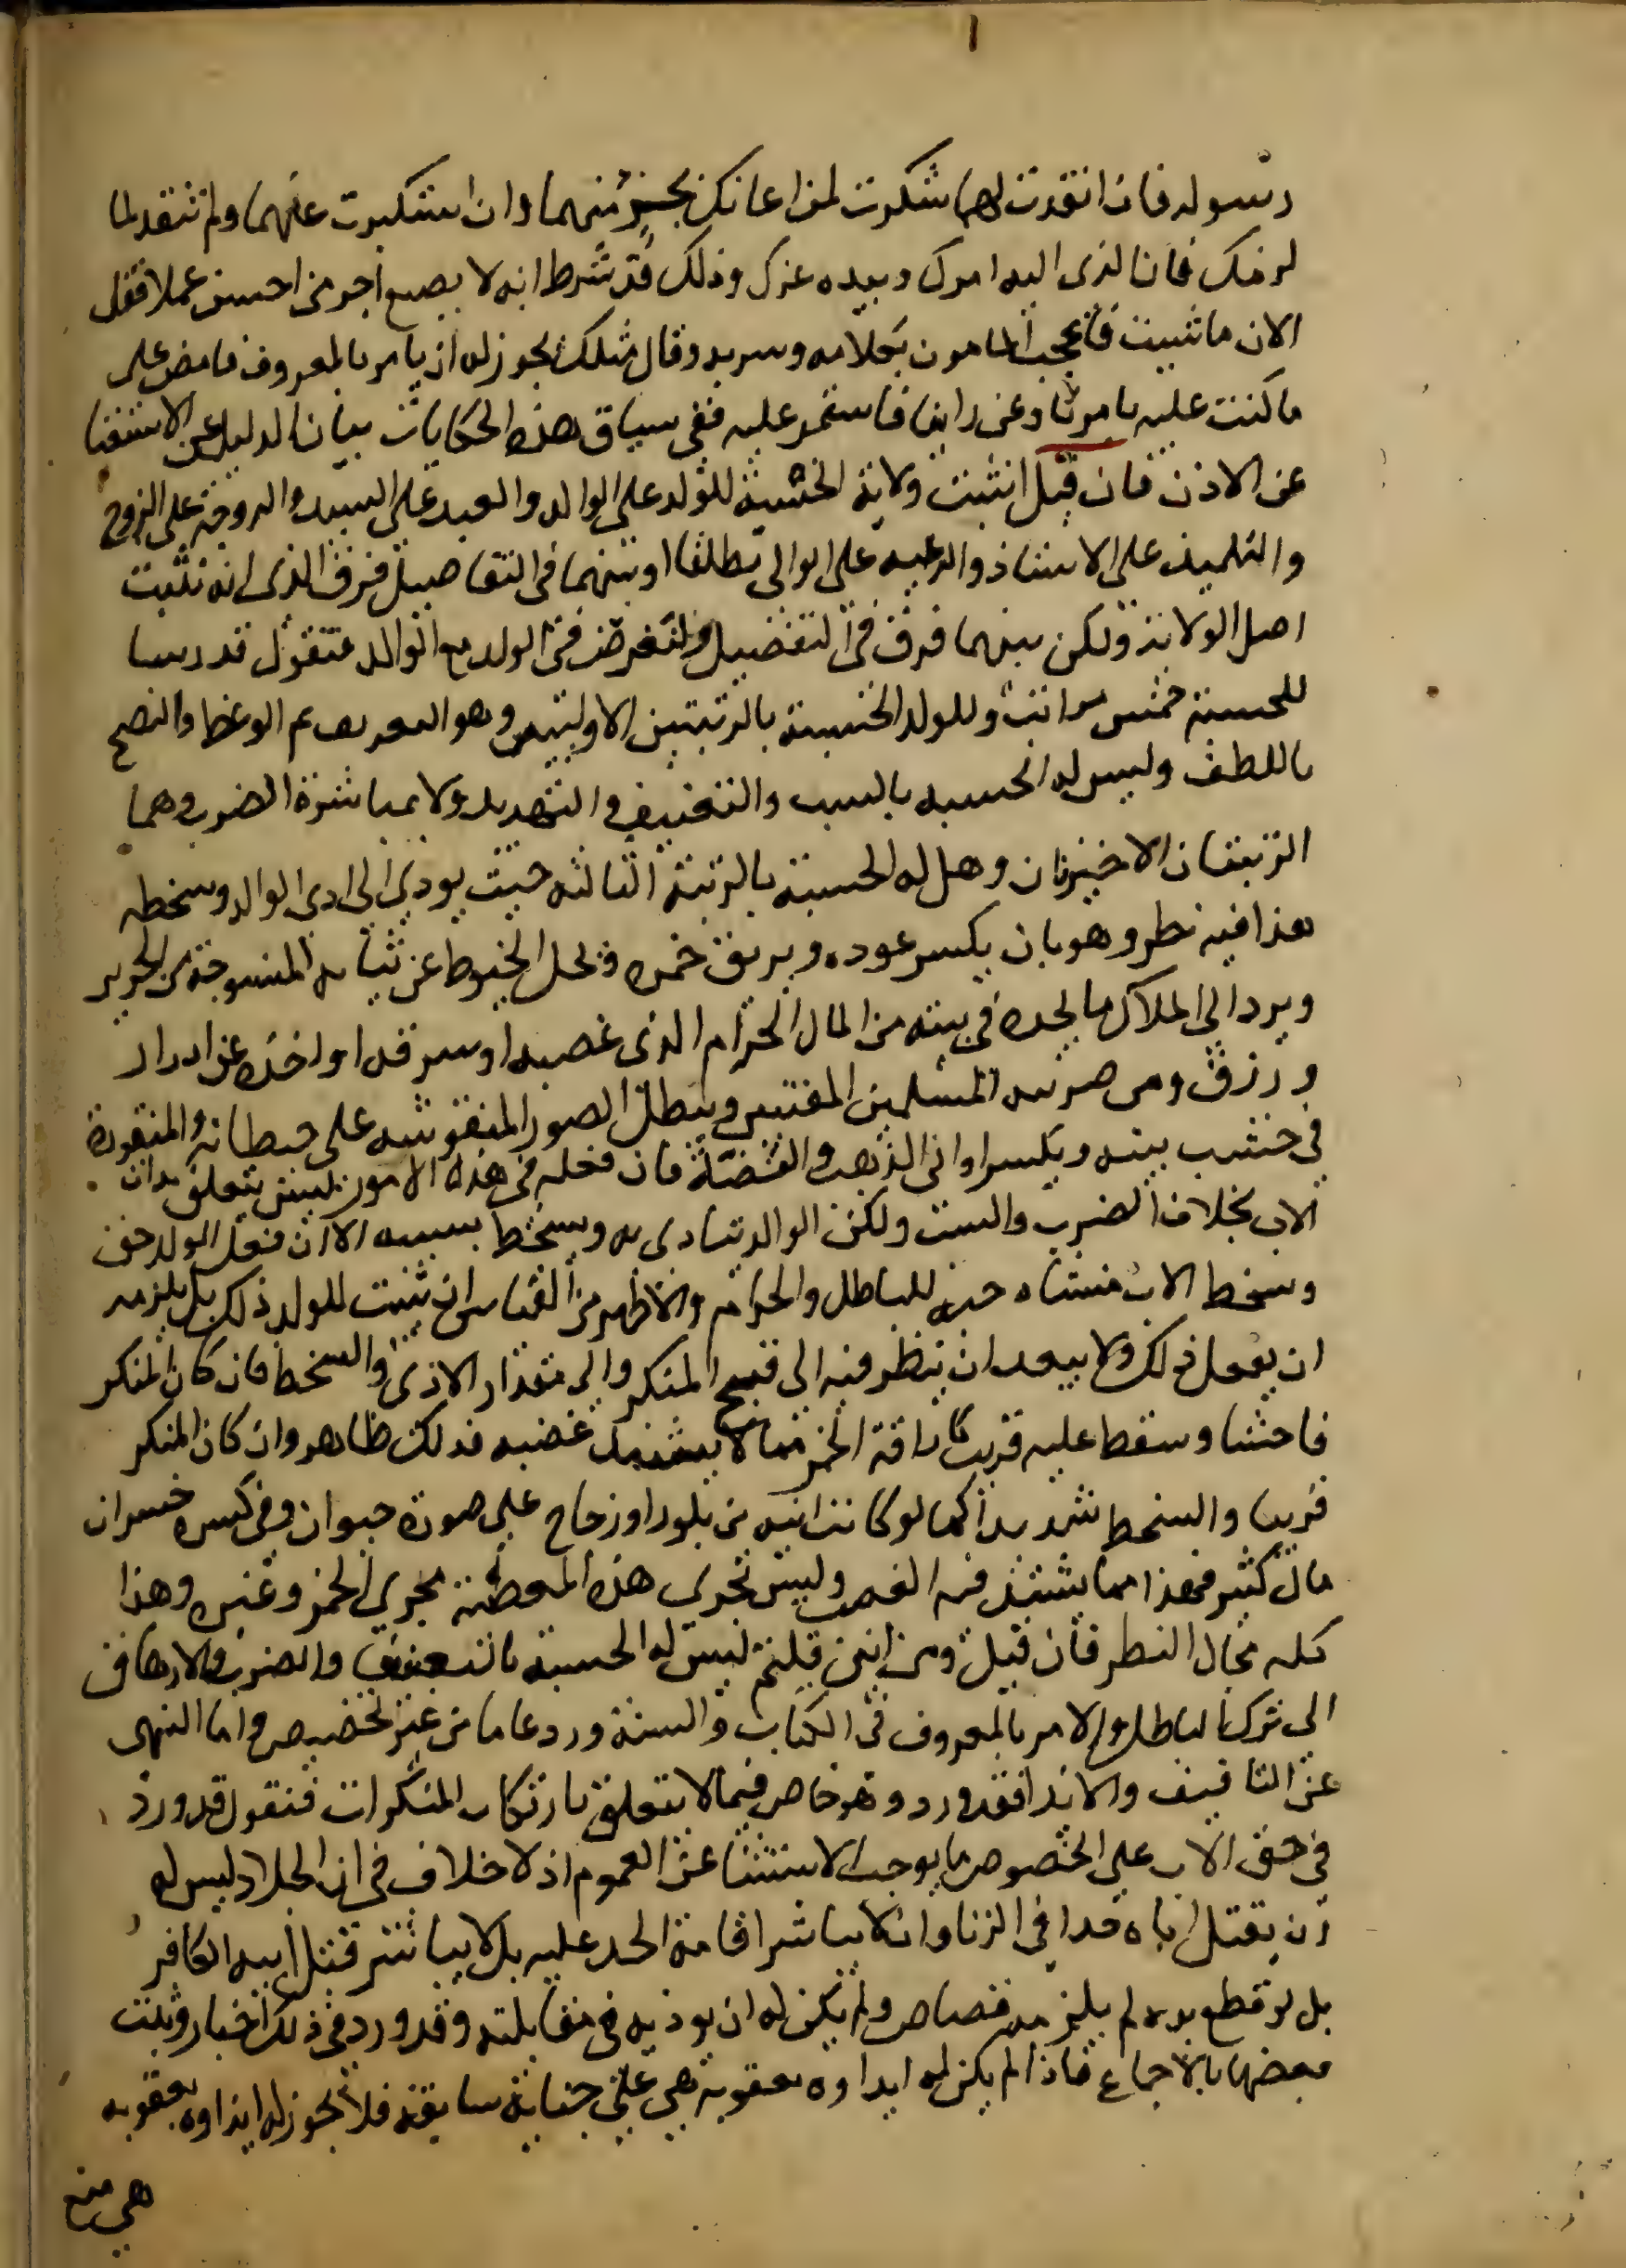 رسوله فان انقدت لهما شكرت لمن اعانك بحرمتهما وان استكبرت عنهما ولم تنقد لما
لزمك فان الذى اليه امرك وبيده عزك وذلك قد شرط انه لا يضيع اجر من احسن عملا فقل
الان ما شيت فاعجب المامون بكلامه وسر به وقال مثلك يجوز له ان يامر بالمعروف فامض على
ما كنت عليه بامرنا وعن راينا فاستمر عليه ففى سياق هذه الحكايات بيان الدليل عن الاستغنا
عن الاذن فان قيل اثبتت ولاية الحسبة للولد على الوالد والعبد على السيد والزوجة على الزوج
والتلميذ على الاستاذ والرعيه على الوالى مطلقا او بينهما فى التفاصيل فرق الذى انه تثبت
اصل الولاية ولكن بينهما فرق فى التفصيل ولنفرض فى الولد مع الوالد فنقول قد رتبنا
للحسبة خمس مراتب وللولد الحسبة بالرتبتين الاوليتين وهو التعريف ثم الوعظ والنصح
باللطف وليس له الحسبه بالسب والتعنيف والتهديد ولا بمباشرة الضرب وهما
الرتبتان الاخيرتان وهل له الحسبة بالرتبة الثالثه حيث يودى الى اذى الوالد وسخطه
هذا فيه نظر وهو بان يكسر عوده ويريق خمره ويحل الخيوط عن ثيابه المنسوجة من الحرير
ويرد الى الملاك ما يجده فى بيته من المال الحرام الذى غصبه او سرقه او اخذه عن ادرار
ورزق ومن ضريبه المسلمين ويبطل الصور المنقوشه على حيطانه والمنقورة
فى خشب بيته ويكسر اوانى الذهب والفضة فان فعله فى هذه الامور ليس يتعلق بذات
الاب بخلاف الضرب والسب ولكن الوالد يتاذى به ويسخط بسببه الا ان فعل الولد حق
وسخط الاب منشاه حبه للباطل والحرام والاظهر فى القياس ان يثبت للولد ذلك بل يلزمه
ان يفعل ذلك ولا يبعد ان ينظر فيه الى قبح المنكر والى مقدار الاذى والسخط فان كان المنكر
فاحشا وسخطه عليه قريب كاراقة الخمر مما لا يشتد غضبه فذلك ظاهر وان كان المنكر
قريبا والسخط شديدا كما لو كانت انيه من بلور او زجاج على صورة حيوان وفى كسره خسران
مال كثير فهذا مما يشتد فيه الغضب وليس تجرى هذه المعصية مجرى الخمر وغيره وهذا
كله مجال النظر فان قيل ومن اين قلتم ليس له الحسبة بالتعنيف والضرب والارهاق
الى ترك الباطل والامر بالمعروف فى الكتاب والسنة ورد عاما من غير تخصيص واما النهى
عن التافيف والايذا فقد ورد وهو خاص فيما لا يتعلق بارتكاب المنكرات فنقول قد ورد
فى حق الاب على الخصوص ما يوجب الاستثنا عن العموم اذ لا خلاف فى ان الجلاد ليس له
ان يقتل اباه حدا فى الزنا وان لا يباشر اقامة الحد عليه بل لا يباشر قتل ابيه الكافر
بل لو قطع يده لم يلزمه قصاص ولم يكن له ان يوذيه فى مقابلته وقد ورد فى ذلك اخبار وثبت
بعضها بالاجماع فاذا لم يكن له ايذاوه بعقوبة هى على جناية سابقة فلا يجوز له ايذاوه بعقوبه
هى منع